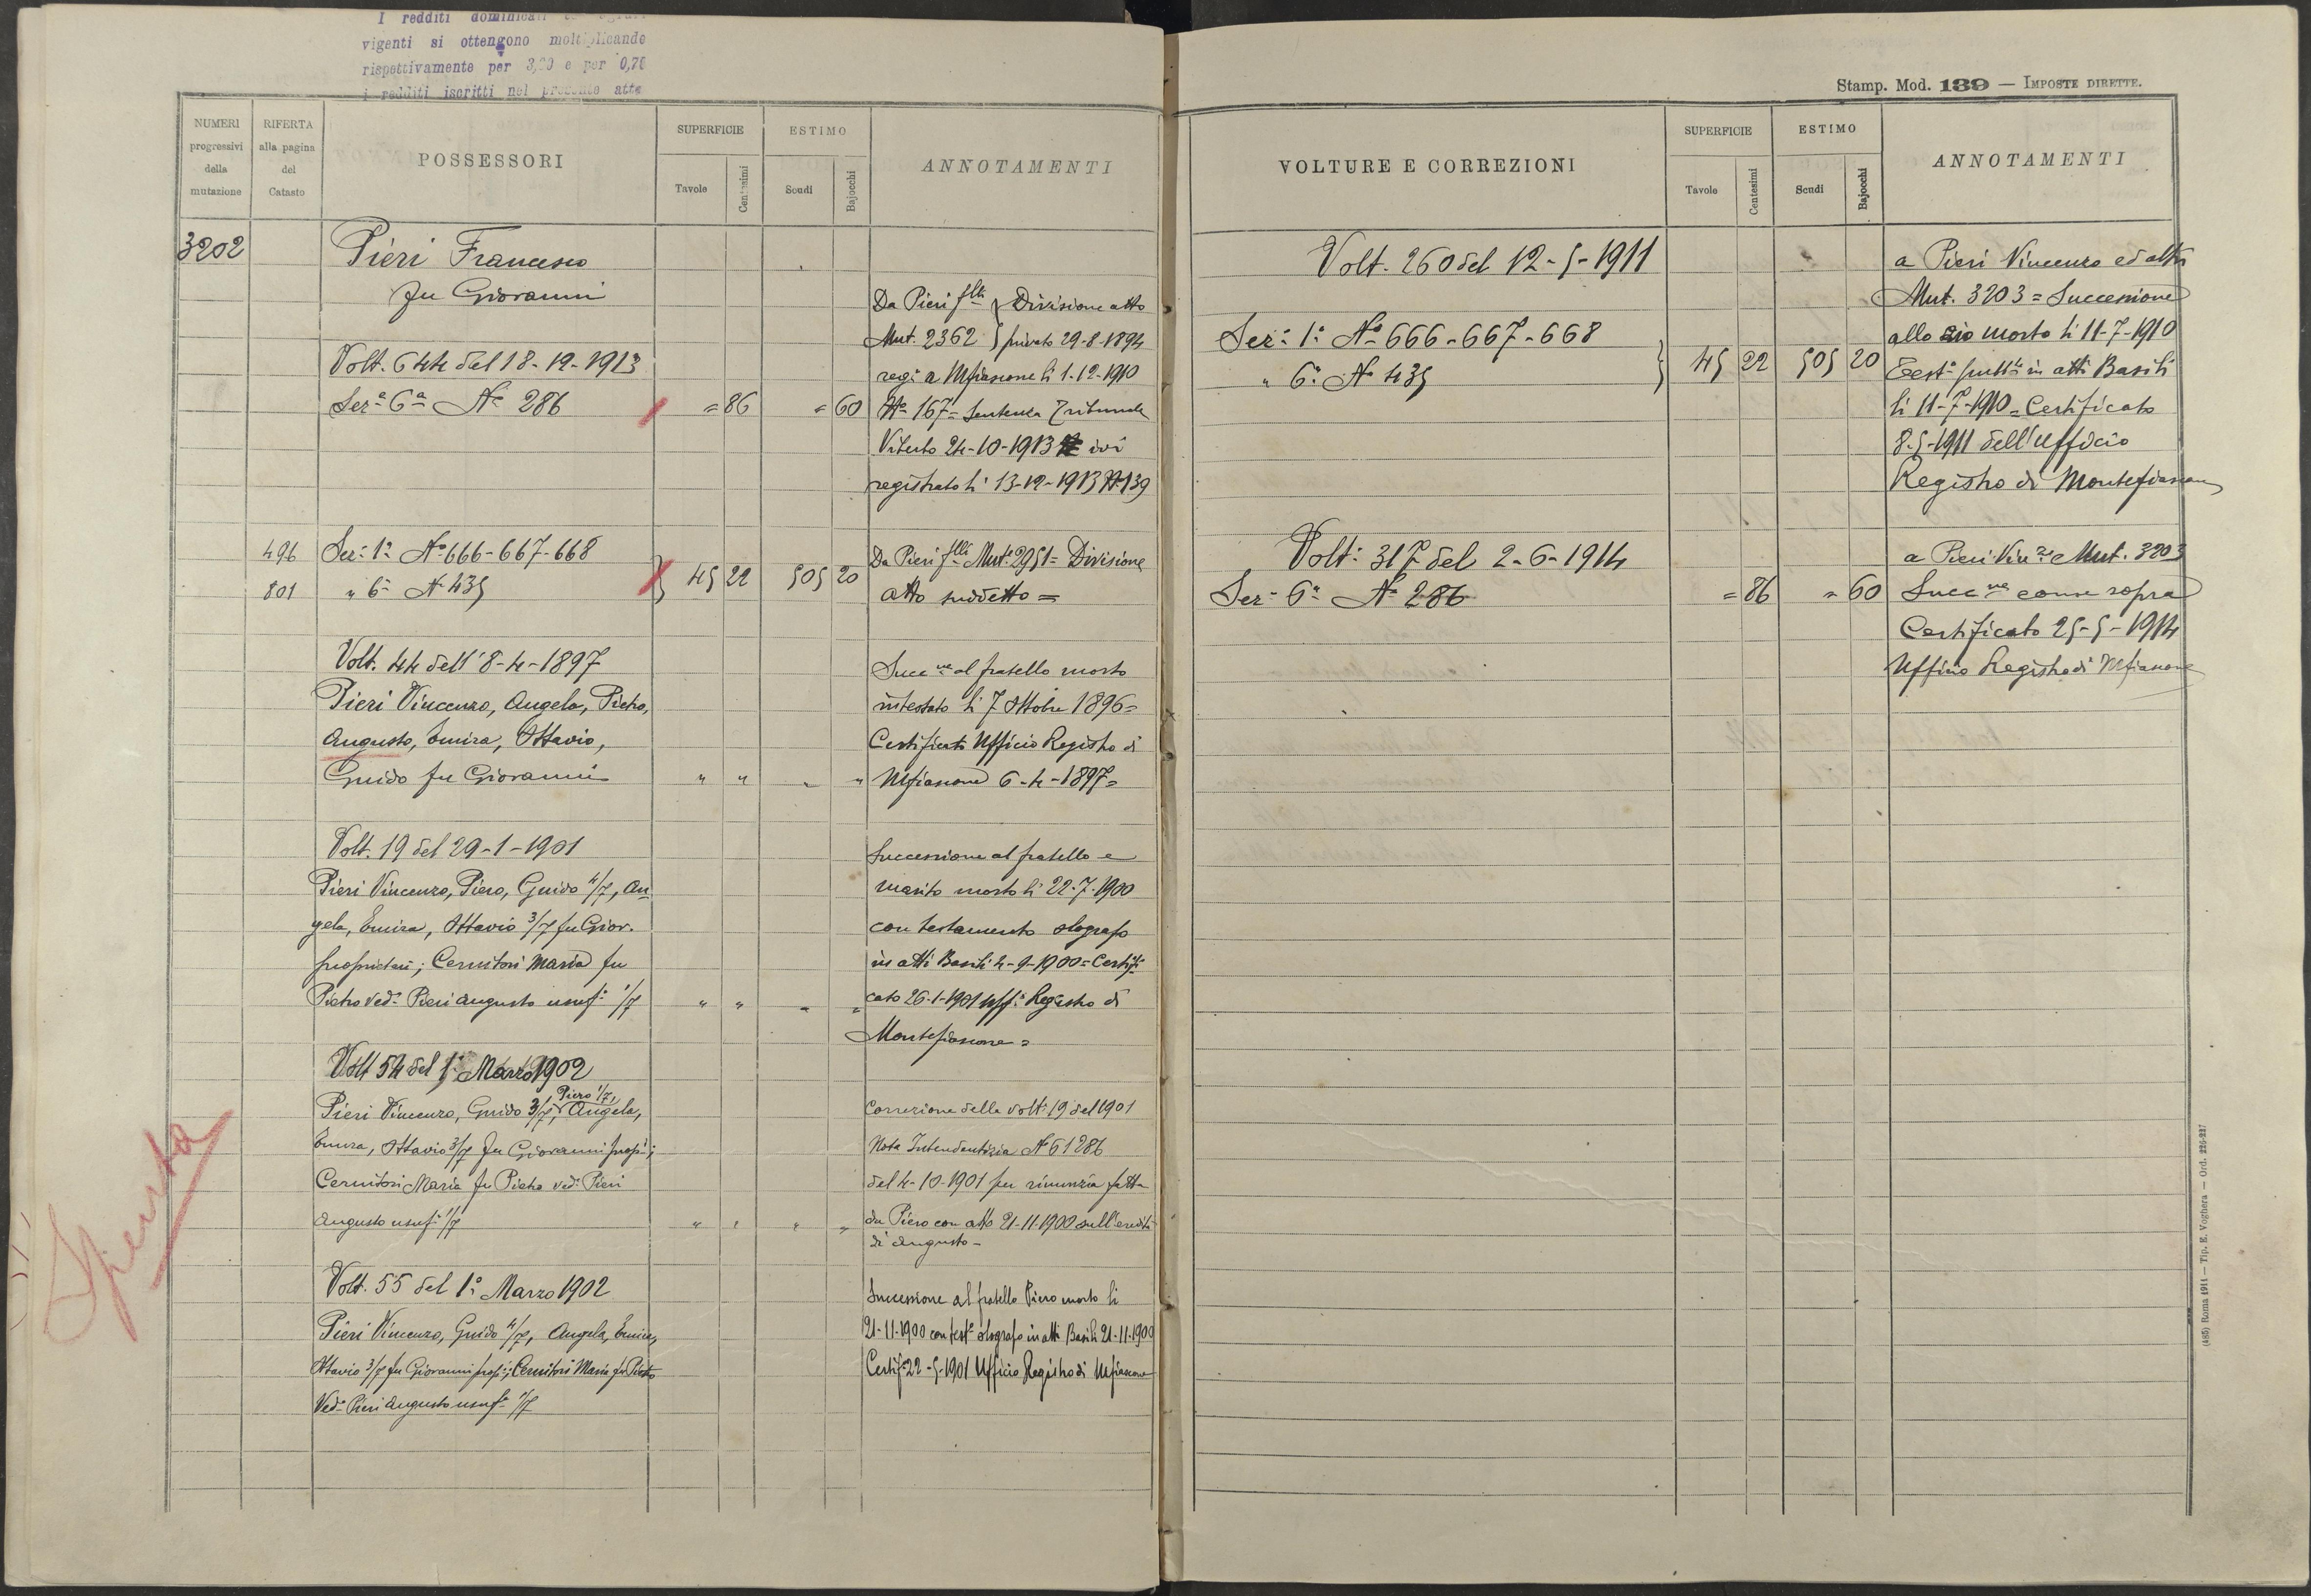 I redditi dominicali
vigenti si ottengono moltiplicando
rispettivamente per 3,20 e per 0,70
i redditi iscritti nel presente atto
NUMERI progressivi della mutazione
RIFERTA alla pagina del Catasto
POSSESSORI
SUPERFICIE
Tavole
Centesimi
ESTIMO
Scudi
Bajocchi
ANNOTAMENTI
3202
Pieri Francesco
fu Giovanni
Volt. 644 del 18-12-1913
Ser.a 6a No 286 = 86 = 60
Da Pieri flli Mut. 2362 } Divisione atto
privato 29-8-1894
rega a Mfiascone li 1-12-1910
No 167 = Sentenza Tribunale
Viterbo 24-10-1913 ivi
registrato li 13-12-1913 No 139
496 Ser.a 1a No 666-667-668
801 " 6a No 435 } 45 22 505 20
Da Pieri flli Mut. 2951 = Divisione
atto suddetto =
Volt. 44 dell' 8-4-1897
Pieri Vincenzo, Angela, Pietro,
Augusto, Emira, Ottavio,
Guido fu Giovanni " " " "
Succne al fratello morto
intestato li 7 Ottobre 1896 =
Certificato Ufficio Registro di
Mfiascone 6-4-1897 =
Volt. 19 del 29-1-1901
Pieri Vincenzo, Piero, Guido 4/7, An=
gela, Emira, Ottavio 3/7 fu Giov.
proprietari; Cernitori Maria fu
Pietro ved.a Pieri Augusto usuf.a 1/7 " " " "
Successione al fratello e
marito morto li 22-7-1900
con testamento olografo
in atti Basili 4-9-1900 = Certifi=
cato 26-1-1901 Uff.o Registro di
Montefiascone =
Volt 54 del 1o Marzo 1902
Pieri Vincenzo, Guido 3/7, Piero 1/7, Angela,
Emira, Ottavio 3/7 fu Giovanni propi;
Cernitori Maria fu Pietro ved.a Pieri
Augusto usuf.a 1/7 " " " "
Correzione della volt. 19 del 1901
Nota Intendentizia No 61286
del 4-10-1901 per rinunzia fatta
da Piero con atto 21-11-1900 sull'eredità
di Augusto -
Volt. 55 del 1o Marzo 1902
Pieri Vincenzo, Guido 4/7, Angela, Emira,
Ottavio 3/7 fu Giovanni propi; Cernitori Maria fu Pietro
Ved.a Pieri Augusto usuf.a 1/7
Successione al fratello Piero morto li
21-11-1900 con testo olografo in atti Basili 21-11-1900
Certif. 22-5-1901 Ufficio Registro di Mfiascone
Spenta
Stamp. Mod. 139 — IMPOSTE DIRETTE.
VOLTURE E CORREZIONI
SUPERFICIE
Tavole
Centesimi
ESTIMO
Scudi
Bajocchi
ANNOTAMENTI
Volt. 260 del 12-5-1911
Ser.a 1a No 666-667-668
" 6a No 435 } 45 22 505 20
a Pieri Vincenzo ed altri
Mut. 3203 = Successione
allo zio morto li 11-7-1910
in atti Basili
li 11-7-1910 = Certificato
8-5-1911 dell'Ufficio
Registro di Montefiascone
Volt. 317 del 2-6-1914
Ser.a 6a No 286 = 86 = 60
a Pieri Vinzo Mut. 3203
Succne come sopra
Certificato 25-5-1914
Ufficio Registro di Mfiascone
(485) Roma 1911 — Tip. E. Voghera — Ord. 226-227